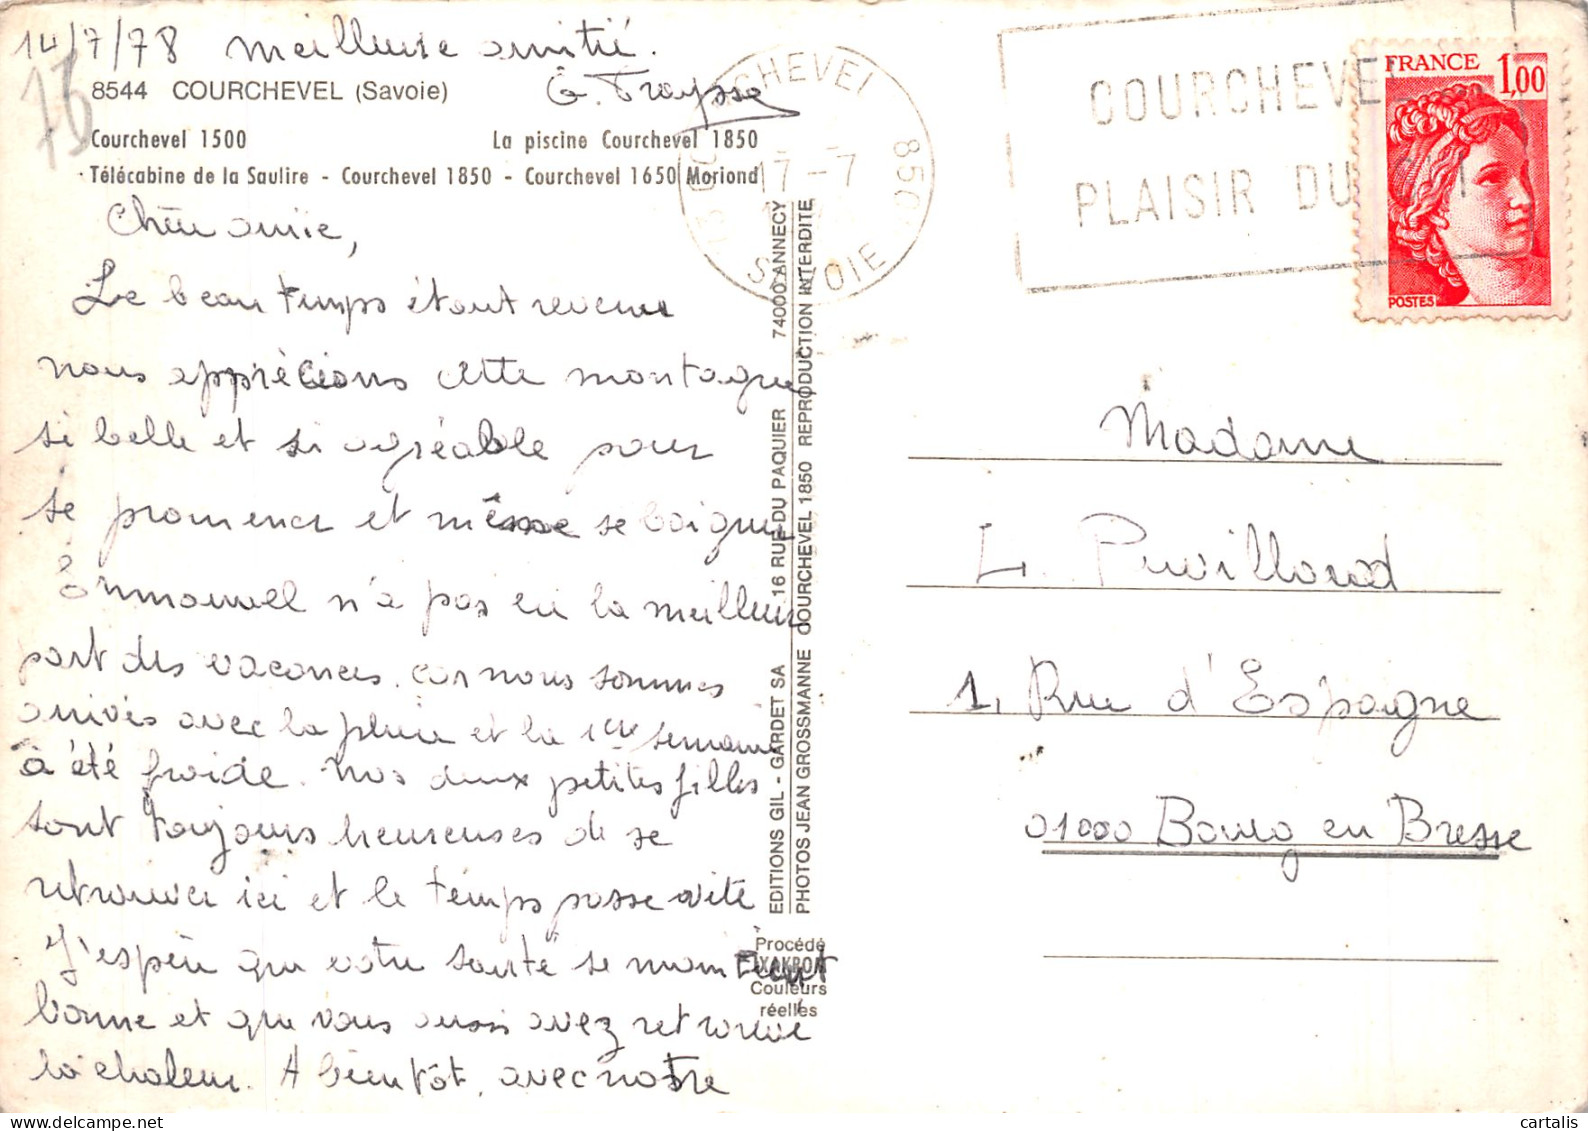 14/7/78 meilleure amitié.
G. Traysse
75
8544 COURCHEVEL (Savoie)
Courchevel 1500 La piscine Courchevel 1850
Télécabine de la Saulire - Courchevel 1850 - Courchevel 1650 Moriond
Chère amie,
Le beau temps étant revenu
nous apprécions cette montagne
si belle et si agréable pour
se promener et même se baigner
Emmanuel n'a pas eu la meilleure
part des vacances. car nous sommes
arrivés avec la pluie et la 1ère semaine
a été froide. Nos deux petites filles
sont toujours heureuses de se
retrouver ici et le temps passe vite
J'espère que votre santé se maintient
bonne et que vous aussi avez retrouvé
la chaleur. A bientôt, avec notre
EDITIONS GIL - GARDET SA 16 RUE DU PAQUIER 74000 ANNECY
PHOTOS JEAN GROSSMANNE COURCHEVEL 1850 REPRODUCTION INTERDITE
Procédé
EIXAKROM
Couleurs
réelles
17-7
SAVOIE
COURCHEVEL
PLAISIR DU
FRANCE 1,00
POSTES
Madame
L. Puvilland
1, Rue d'Espagne
01000 Bourg en Bresse
cartalis